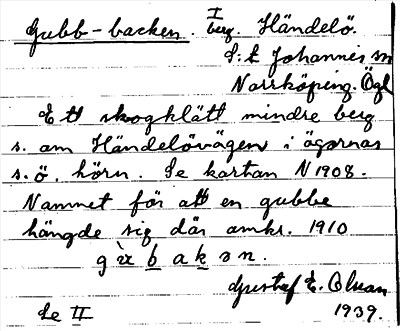 Gubb-backen. I berg. Händelö.
S:t Johannis sn
Norrköping. Ögl
Ett skogklätt mindre berg
s. om Händelövägen i ägornas
s.ö. hörn. Se kartan N 1908.
Namnet för att en gubbe
hängde sig där omkr. 1910
gùbakən.
Gustaf E. Olsson
Se II 1939.